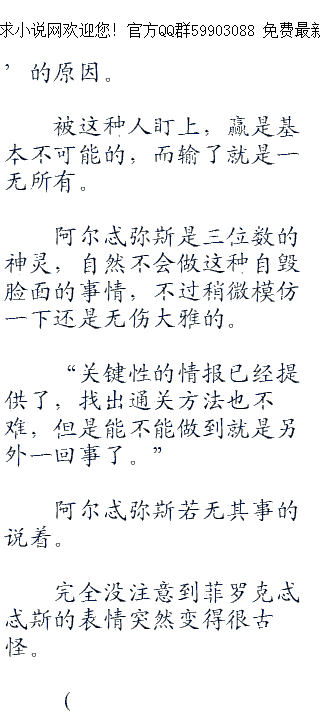 求小说网欢迎您！官方QQ群59903088 免费最新
’的原因。
被这种人盯上，赢是基
本不可能的，而输了就是一
无所有。
阿尔忒弥斯是三位数的
神灵，自然不会做这种自毁
脸面的事情，不过稍微模仿
一下还是无伤大雅的。
“关键性的情报已经提
供了，找出通关方法也不
难，但是能不能做到就是另
外一回事了。”
阿尔忒弥斯若无其事的
说着。
完全没注意到菲罗克忒
忒斯的表情突然变得很古
怪。
（